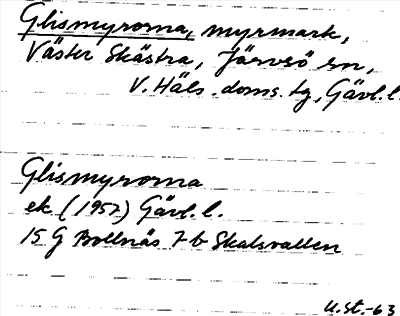 Glismyrorna, myrmark,
Väster Skästra, Järvsö sn,
V. Häls. doms. tg, Gävl. l.
Glismyrorna
ek (1957) Gävl. l.
15 G Bollnäs 7b Skalsvallen
U.St.-63